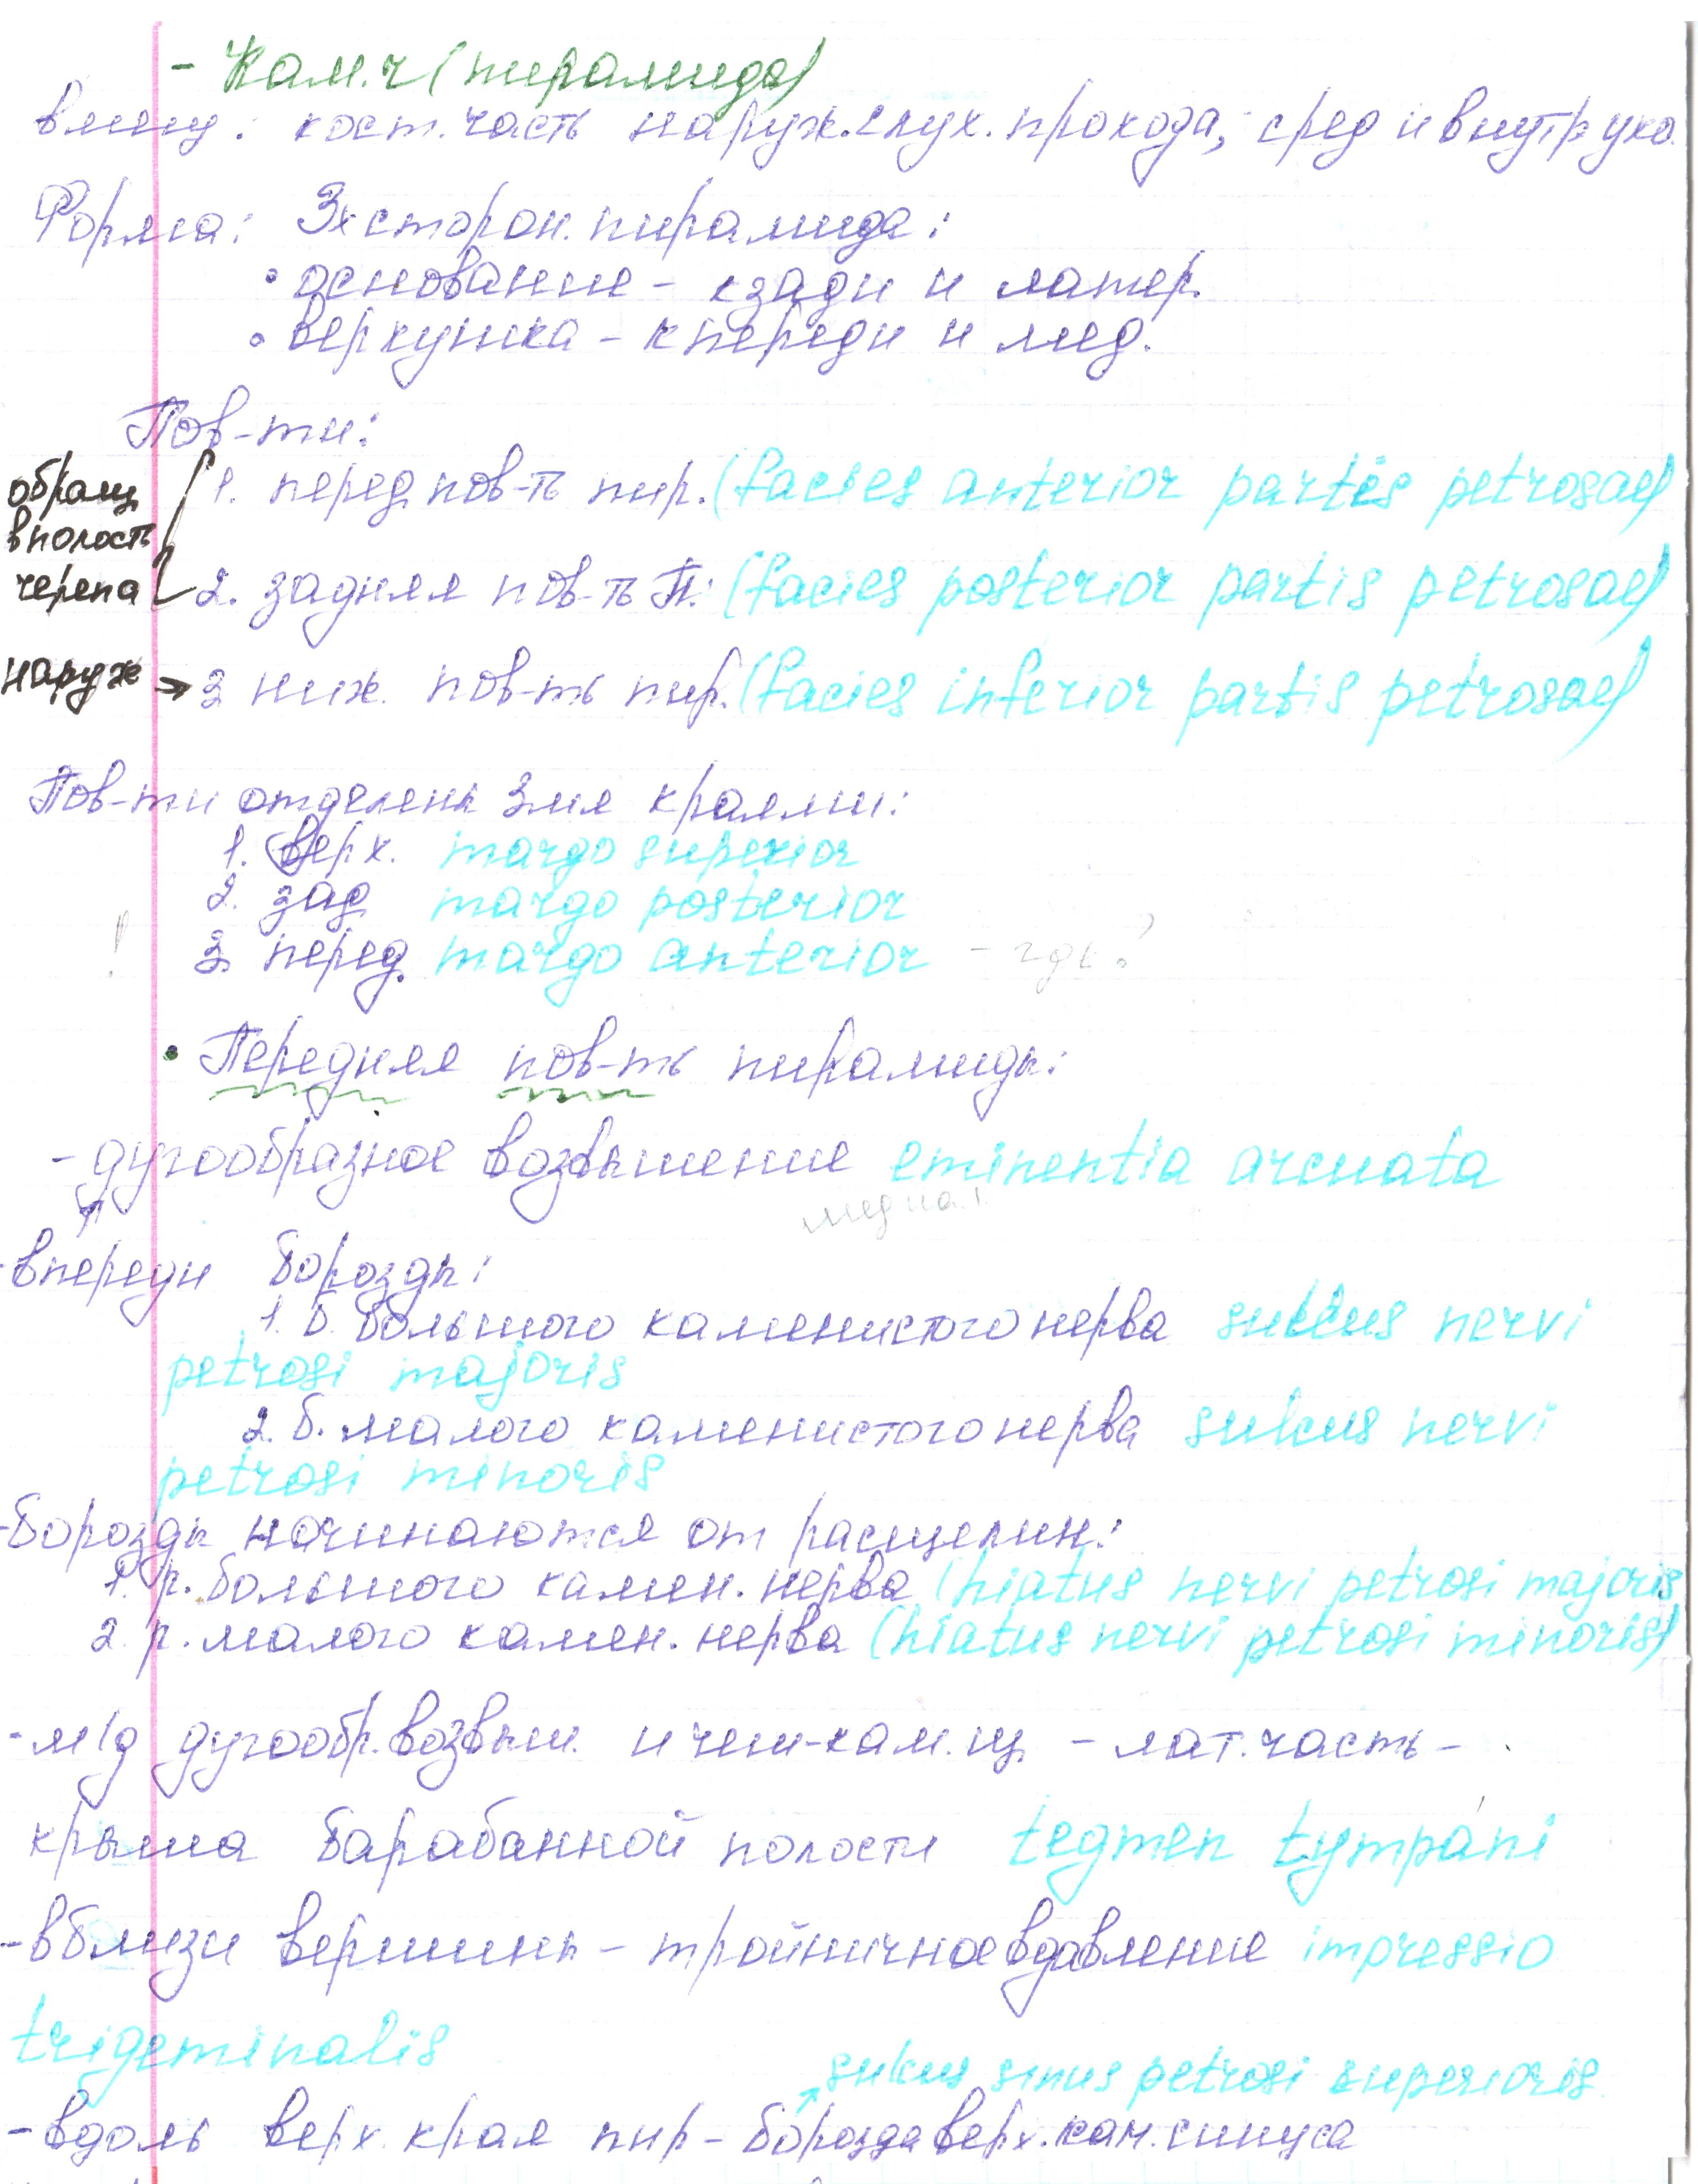 - Кам.ч (пирамида)
вмещ: кост.часть наруж.слух.прохода, сред и внутр уха.
Форма: 3х сторон. пирамида:
• основание - кзади и латер.
• верхушка - кпереди и мед.
Пов-ти:
обращ в полость черепа
1. перед пов-ть пир. (facies anterior partis petrosae)
2. задняя пов-ть п. (facies posterior partis petrosae)
наруж → 3 ниж. пов-ть пир. (facies inferior partis petrosae)
Пов-ти отделены 3мя краями:
1. верх. margo superior
2. зад margo posterior
! 3. перед. margo anterior - где?
• Передняя пов-ть пирамиды:
- дугообразное возвышение eminentia arcuata
- впереди борозды:
1. б. большого каменистого нерва sulcus nervi
petrosi majoris
2. б. малого каменистого нерва sulcus nervi
petrosi minoris
- борозды начинаются от расщелин:
1. р. большого камен. нерва (hiatus nervi petrosi majoris
2. р. малого камен. нерва (hiatus nervi petrosi minoris)
- м/д дугообр. возвыш. и чеш-кам. щ. - лат. часть -
крыша барабанной полости tegmen tympani
- вблизи вершины - тройничное вдавление impressio
trigeminalis
sulcus sinus petrosi superioris
- вдоль верх. края пир - борозда верх. кам. синуса